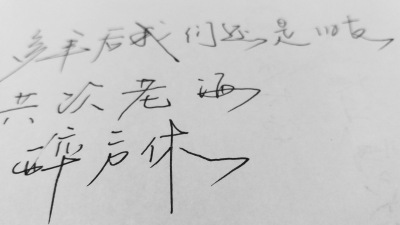 多年后我们还是旧友
共饮老酒
醉方休